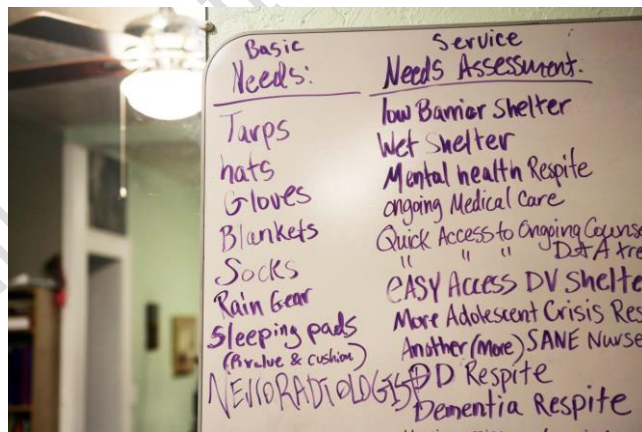 Basic
Needs:
Tarps
hats
Gloves
Blankets
Socks
Rain Gear
Sleeping pads
(Rvalue & cushion)
NEUORADIOLOGIST
Service
Needs Assessment.
low Barrier Shelter
Wet Shelter
Mental health Respite
ongoing Medical Care
Quick Access to Ongoing Counse
" " " D+A tre
eASY Access DV Shelte
More Adolescent Crisis Res
Another (More) SANE Nurse
DD Respite
Dementia Respite